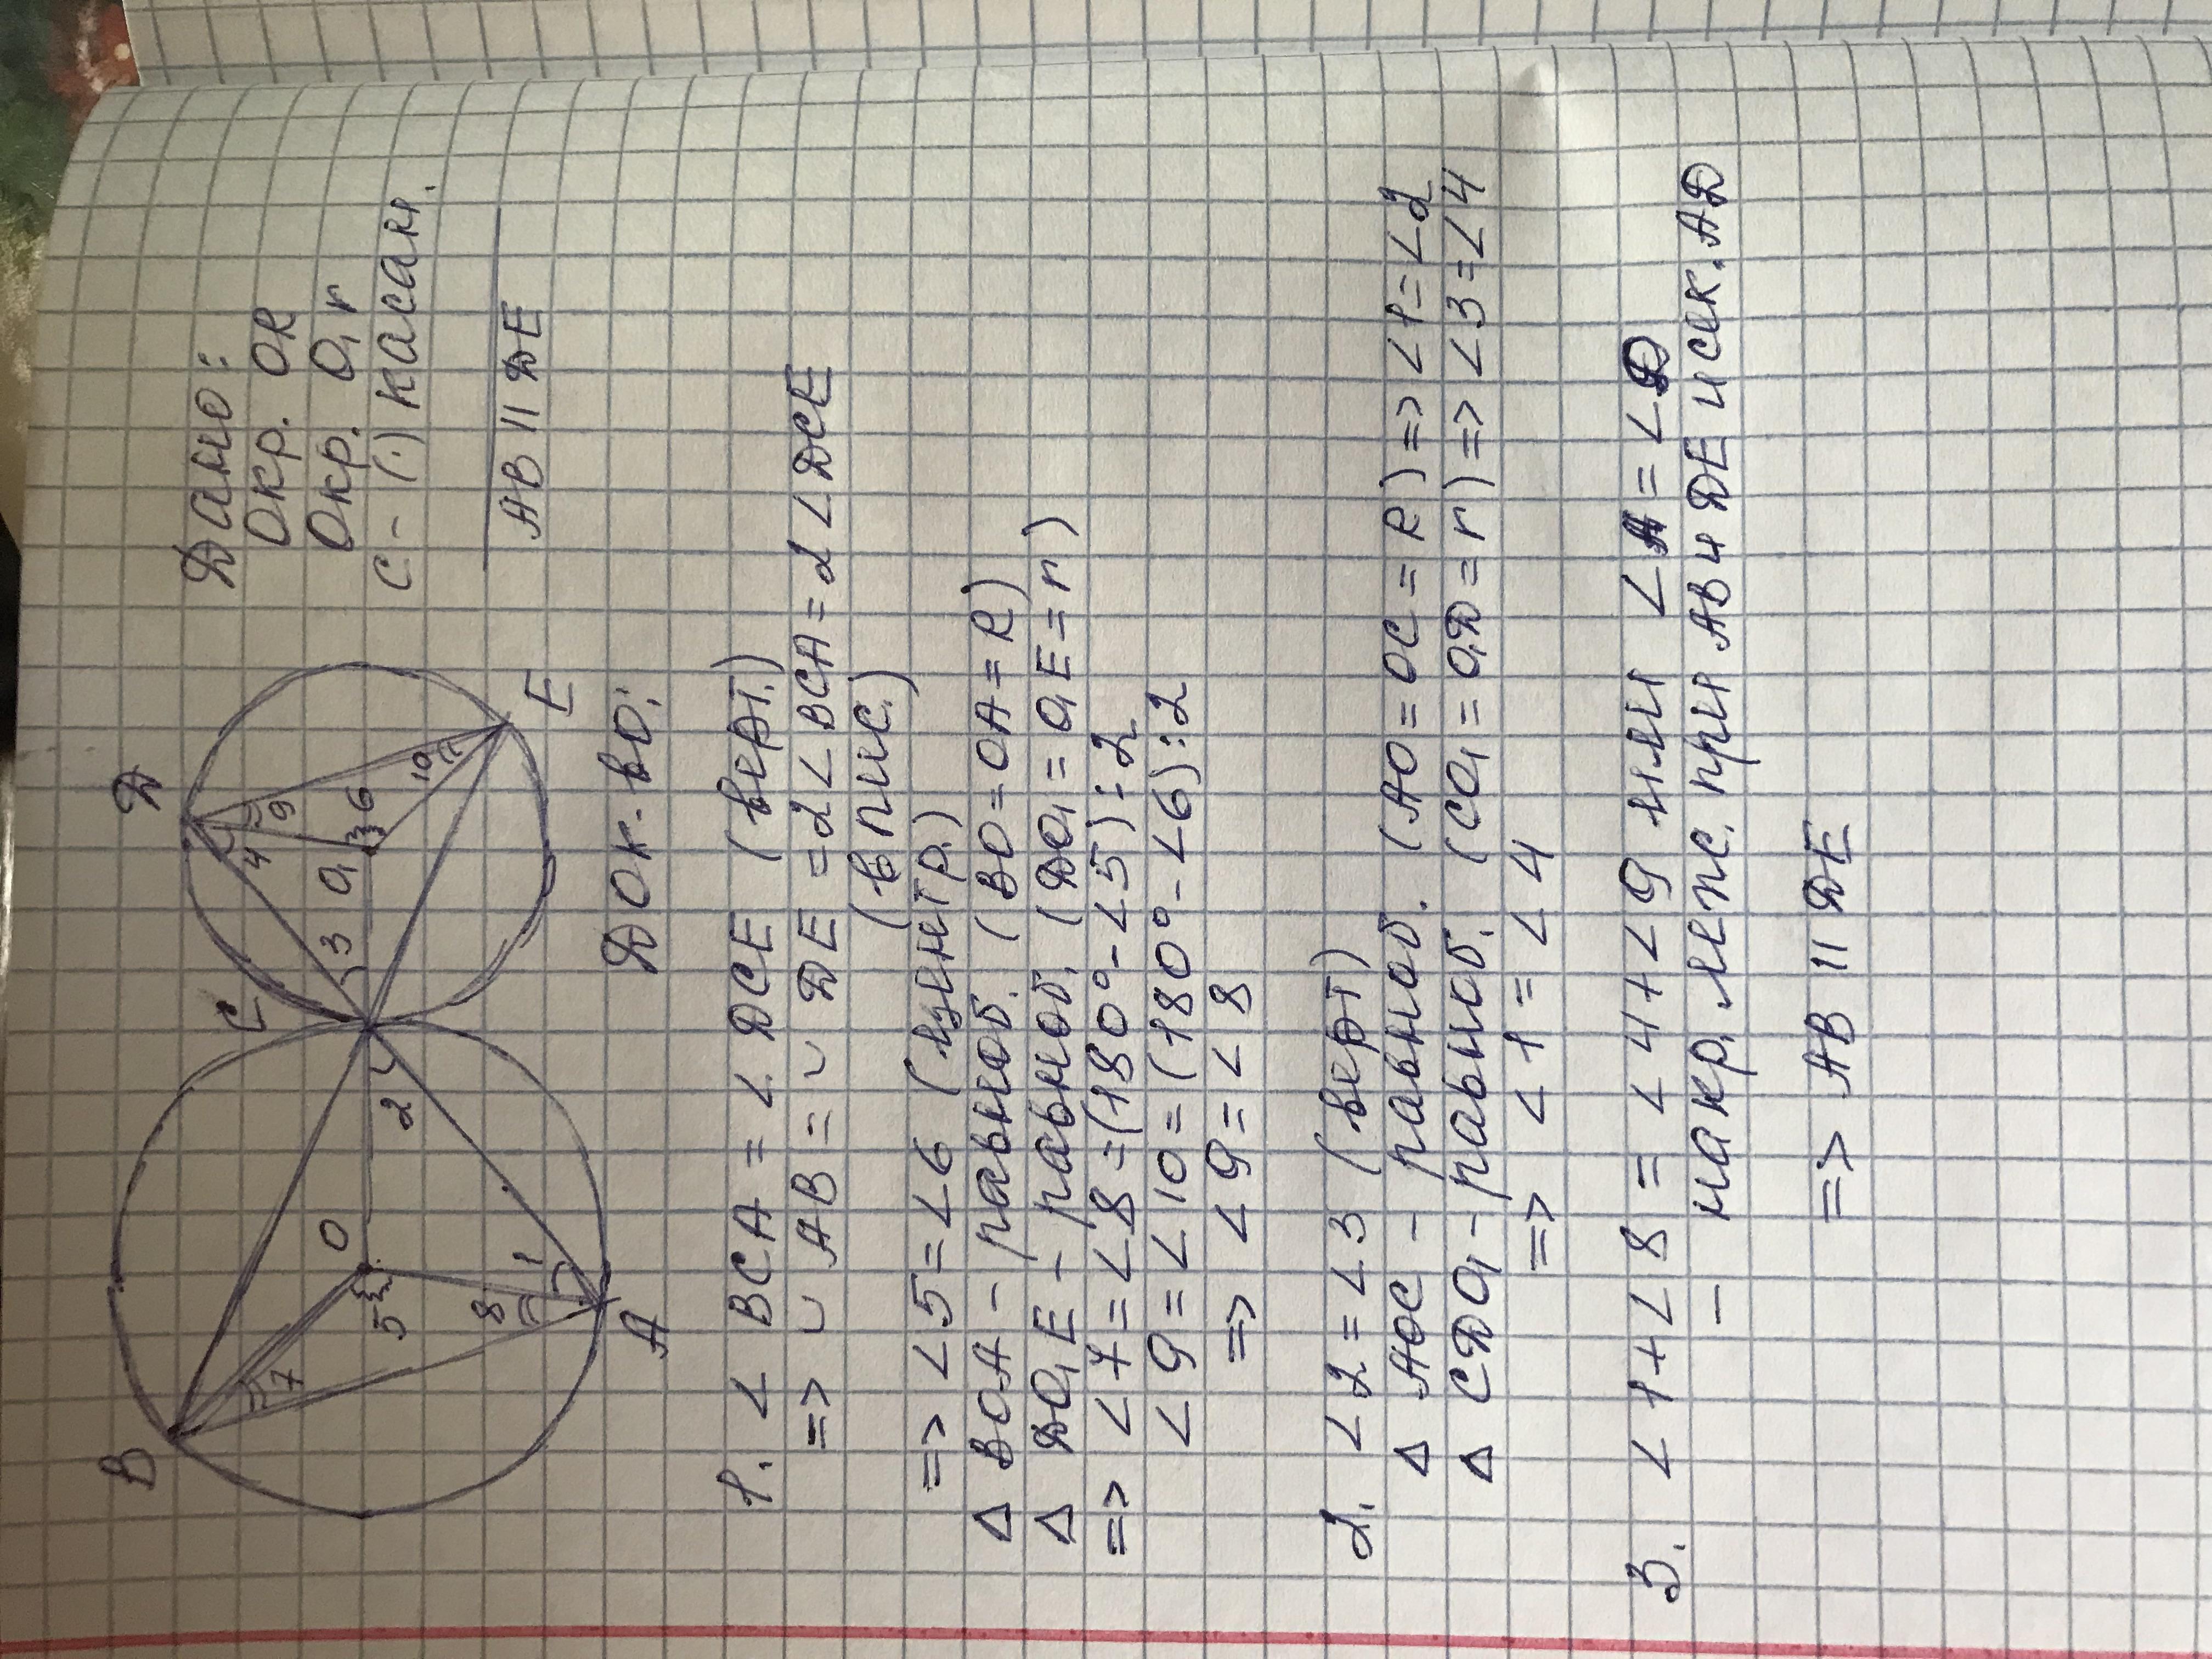 Дано:
Окр. OR
Окр. O₁ r
С - (·) касан.
AB || ДЕ
B
Д
C
O
O₁
A
E
1
2
3
4
5
6
7
8
9
10
Док-во:
1. ∠ BCA = ∠ ДCE (верт.)
=> ◡ AB = ◡ ДЕ = 2∠BCA = 2∠ДCE
(впис.)
=> ∠5 = ∠6 (центр.)
Δ BOA - равноб. (BO = OA = R)
Δ ДO₁E - равноб. (ДO₁ = O₁E = r)
=> ∠7 = ∠8 = (180° - ∠5) : 2
∠9 = ∠10 = (180° - ∠6) : 2
=> ∠9 = ∠8
2. ∠2 = ∠3 (верт)
Δ AOC - равноб. (AO = OC = R) => ∠1 = ∠2
Δ CДO₁ - равноб. (CO₁ = O₁Д = r) => ∠3 = ∠4
=> ∠1 = ∠4
3. ∠1 + ∠8 = ∠4 + ∠9 или ∠A = ∠Д
- накр. леж. при AB и ДЕ и сек. AД
=> AB || ДЕ